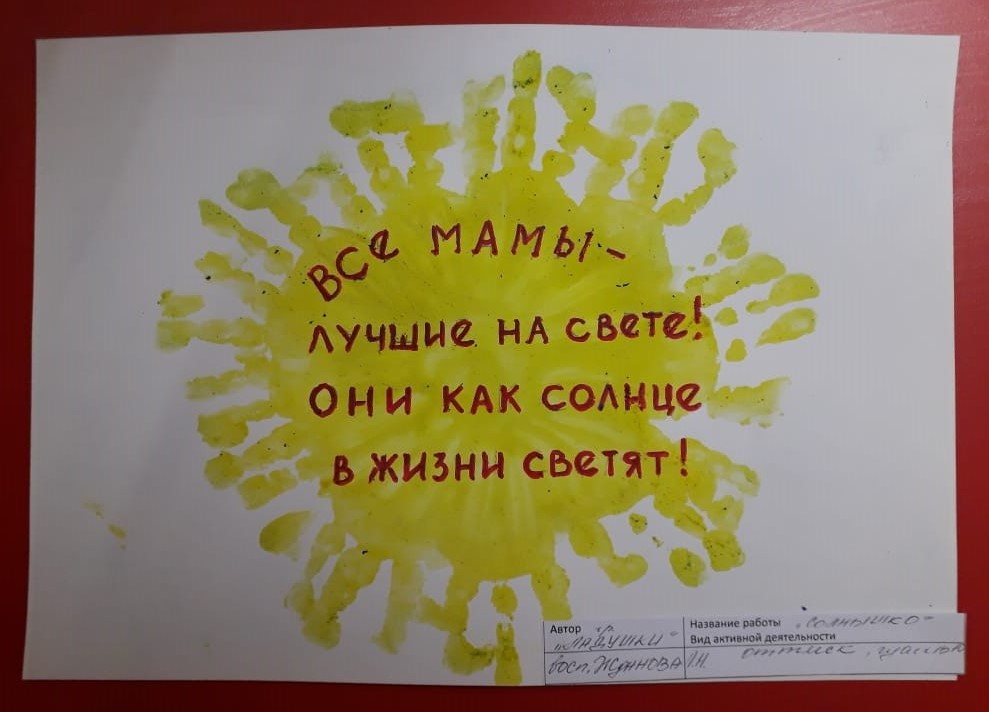 ВСЕ МАМЫ-
ЛУЧШИЕ НА СВЕТЕ!
ОНИ КАК СОЛНЦЕ
В ЖИЗНИ СВЕТЯТ!
Автор гр. "ЛАДУШКИ"
Восп. Жданова
Название работы "Солнышко"
Вид активной деятельности
оттиск,